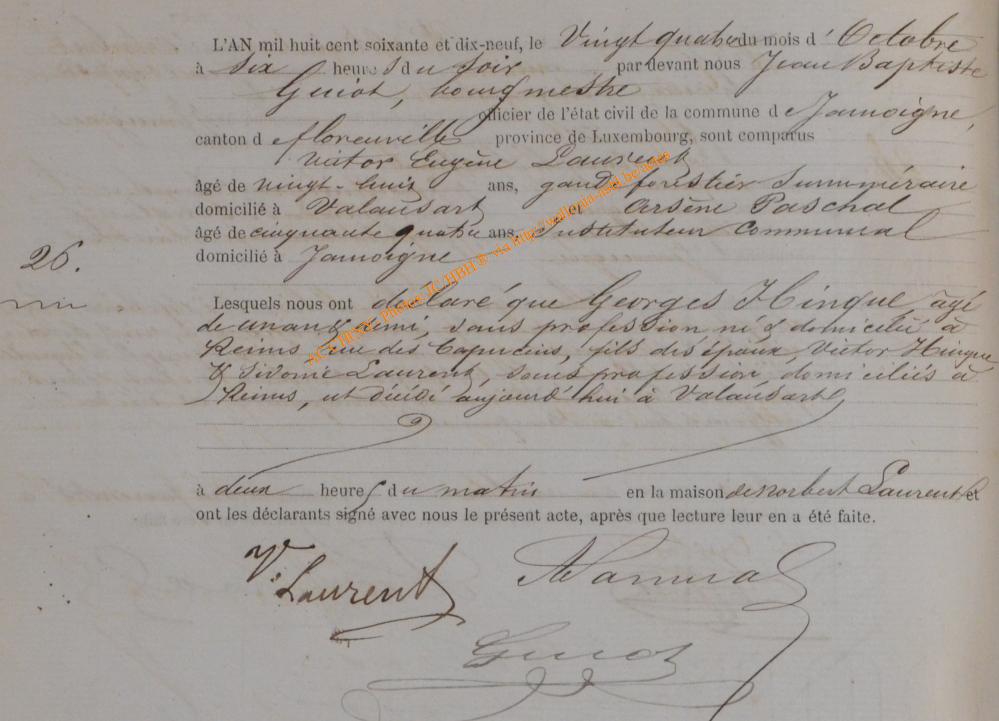 L'AN mil huit cent soixante et dix-neuf, le Vingt quatre du mois d' Octobre
à Six heures du Soir par devant nous Jean Baptiste
Guiot, bourgmestre
officier de l'état civil de la commune de Jamoigne,
canton de florenville province de Luxembourg, sont comparus
Victor Eugène Laurent
âgé de vingt-huit ans, garde forestier Surnuméraire
domicilié à Valansart et Arsène Paschal
âgé de cinquante quatre ans, Instituteur Communal
domicilié à Jamoigne
26.
Lesquels nous ont déclaré que Georges Hinque âgé
de un an & demi, sans profession né & domicilié à
Reims rue des Capucins, fils des épaux Victor Hinque
& Sidonie Laurent, sans profession domiciliés à
Reims, est décédé aujourd'hui à Valansart
à deux heures du matin en la maison de Norbert Laurent et
ont les déclarants signé avec nous le présent acte, après que lecture leur en a été faite.
V. Laurent
Guiot
ACTHENS Photos JC.HBH® via http://wallonia-asbl.be/actes